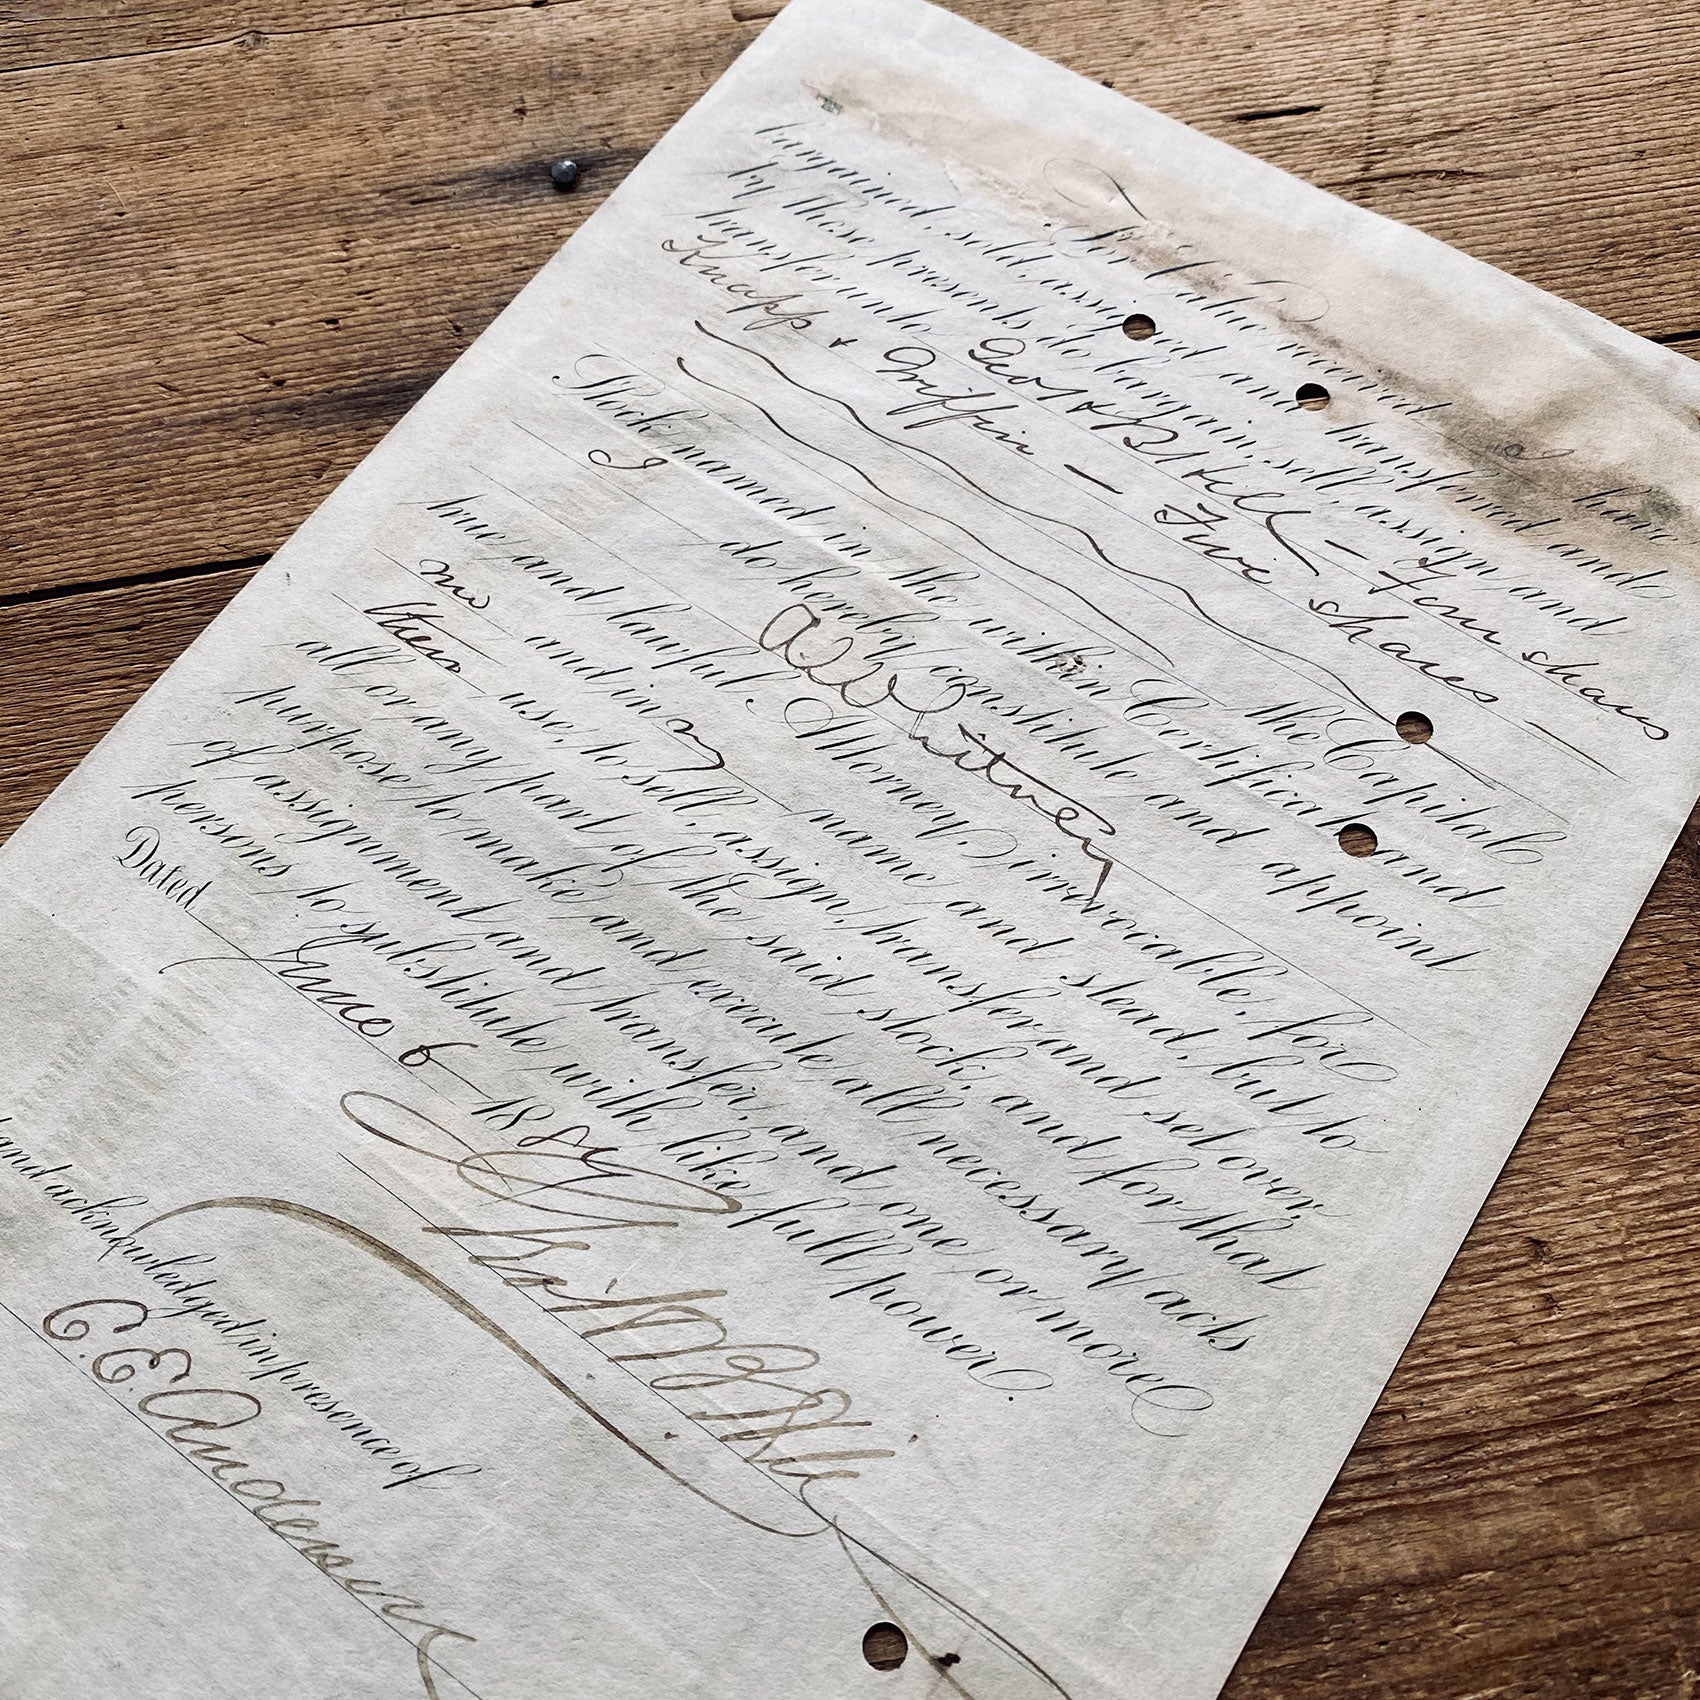 For Value received I have
bargained, sold, assigned and transferred and
by these presents do bargain, sell, assign, and
transfer unto Geo & B Hill – Ten shares
Knapp & Griffin – Five shares –
the Capital
Stock named in the within Certificate and
I do hereby constitute and appoint
A W Whitney
true and lawful Attorney, irrevocable, for
and in my name and stead, but to
use, to sell, assign, transfer and set over,
all or any part of the said stock, and for that
purpose to make and execute all necessary acts
of assignment and transfer, and one or more
persons to substitute with like full power.
Dated June 6 1889
and acknowledged in presence of
C. E. Anderson